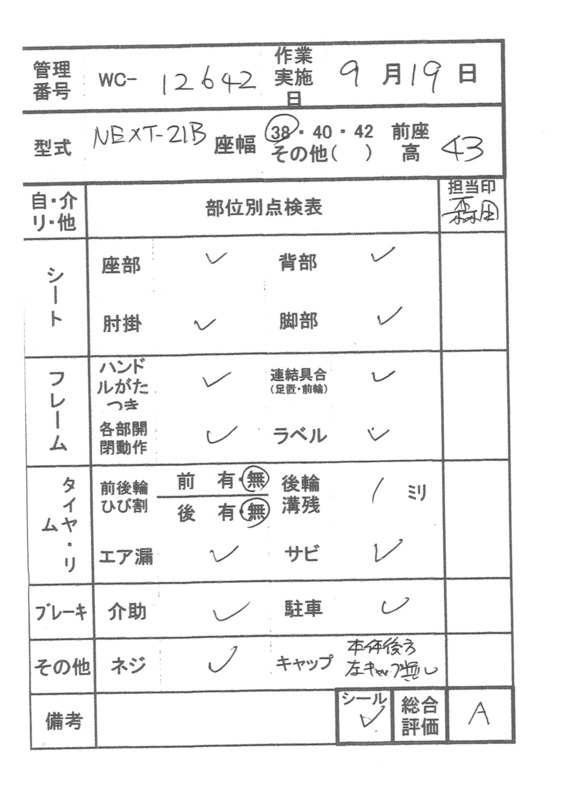 管理番号 WC- 12642 作業実施日 9月19日
型式 NEXT-21B 座幅 38・40・42 その他( ) 前座高 43
自・介リ・他 部位別点検表 担当印 森田
シート 座部 ✓ 背部 ✓
肘掛 ✓ 脚部 ✓
フレーム ハンドルがたつき ✓ 連結具合(足置・前輪) ✓
各部開閉動作 ✓ ラベル ✓
タイヤ・リム 前後輪ひび割 前 有・無 後輪溝残 1 ミリ
後 有・無
エア漏 ✓ サビ ✓
ブレーキ 介助 ✓ 駐車 ✓
その他 ネジ ✓ キャップ 本体後方
左キャップ無し
備考 シール ✓ 総合評価 A